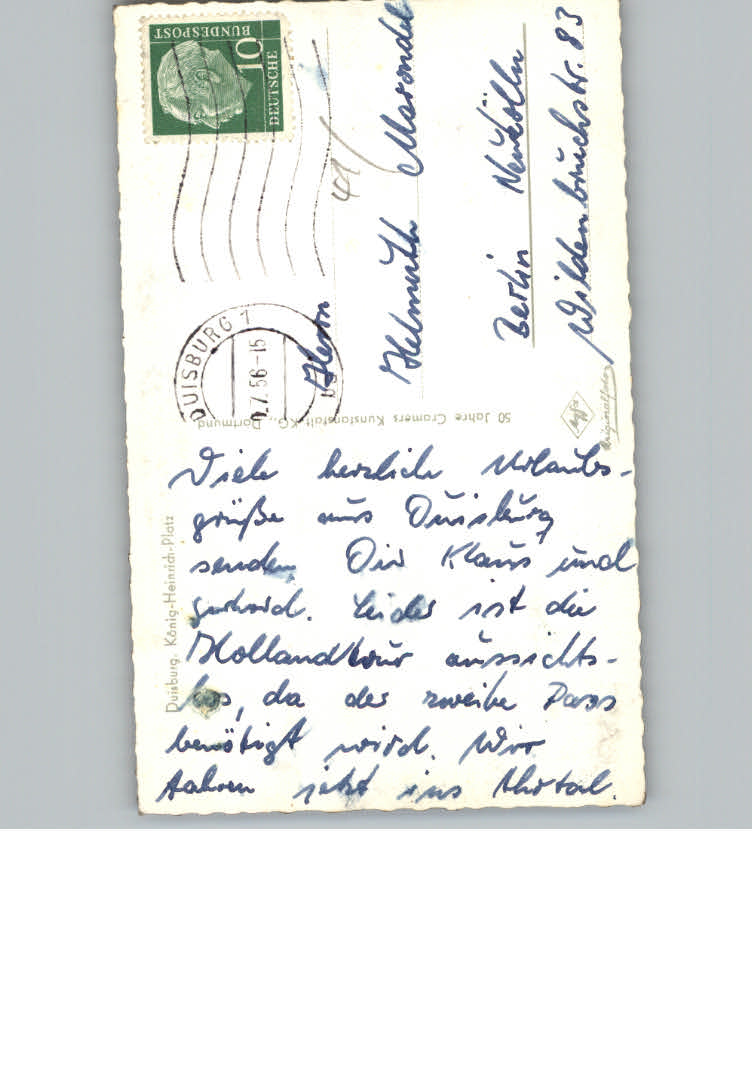 DEUTSCHE
BUNDESPOST
10
DUISBURG 1
.7.56-15
41/
Herrn
Helmuth
Berlin Neukölln
Wildenbruchstr. 83
50 Jahre Cramers Kunstanstalt KG., Dortmund
Agfa
Originalfoto
Duisburg. König-Heinrich-Platz
Viele herzliche Urlaubs-
grüße aus Duisburg
senden Dir Klaus und
Gerhard. Leider ist die
Hollandtour aussichts-
los, da der zweite Pass
benötigt wird. Wir
fahren jetzt ins Ahrtal.